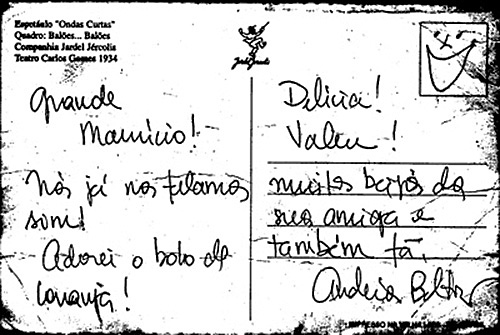 Espetáulo "Ondas Curtas"
Quadro: Balões... Balões
Companhia Jardel Jércolis
Teatro Carlos Gomes 1934
Grande
Mauricio!
Nós já nos falamos
somi!
Adorei o bolo de
laranja!
Delicia!
Valeu!
muitos beijos da
sua amiga e
também fã,